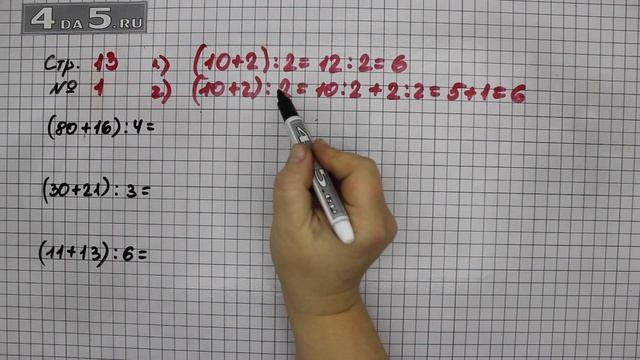 4 DA 5.RU
Стр. 13 1) (10+2):2=12:2=6
№ 1 2) (10+2):2=10:2+2:2=5+1=6
(80+16):4=
(30+21):3=
(11+13):6=